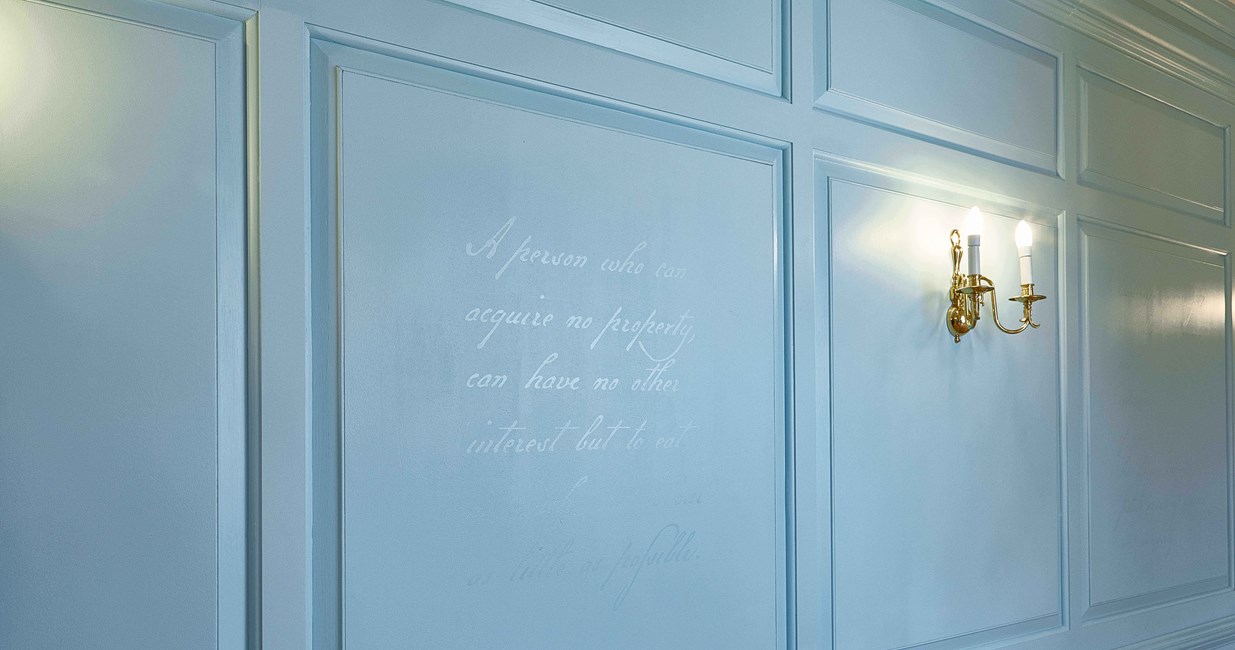 A person who can
acquire no property,
can have no other
interest but to eat
as little as possible.